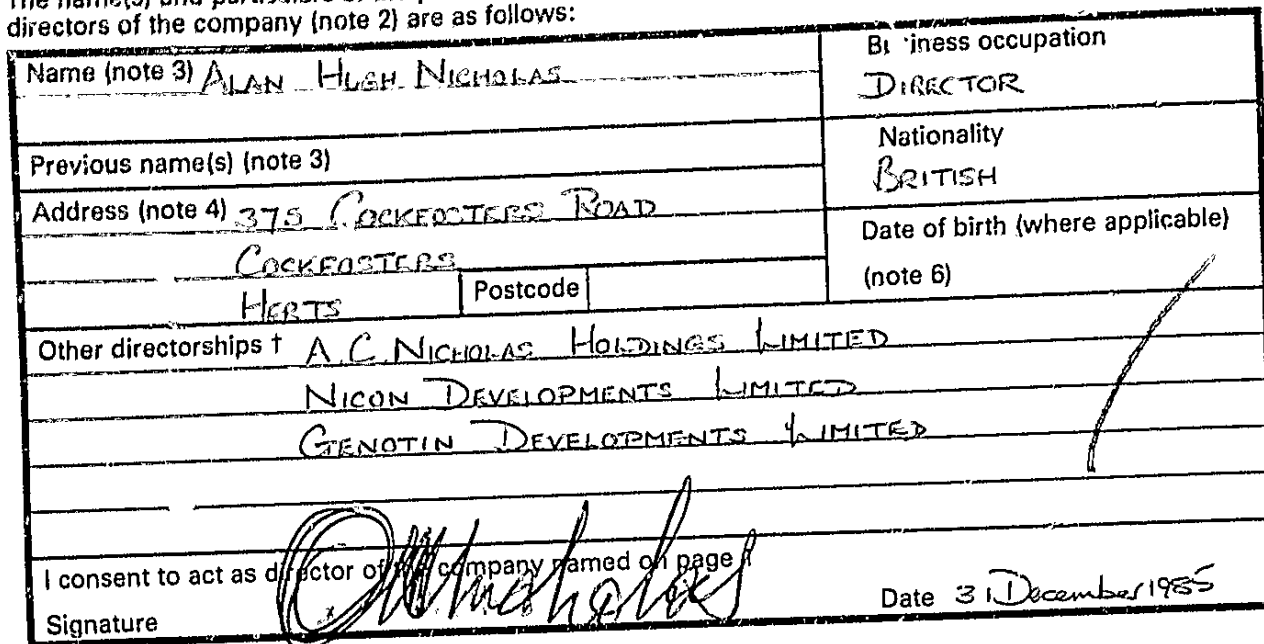 directors of the company (note 2) are as follows:
Name (note 3) ALAN HUGH NICHOLAS
Business occupation
DIRECTOR
Previous name(s) (note 3)
Nationality
BRITISH
Address (note 4) 375 COCKFOSTERS ROAD
COCKFOSTERS
HERTS Postcode
Date of birth (where applicable)
(note 6)
Other directorships † A.C. NICHOLAS HOLDINGS LIMITED
NICON DEVELOPMENTS LIMITED
GENOTIN DEVELOPMENTS LIMITED
I consent to act as director of the company named on page 1
Signature
Date 31 December 1985